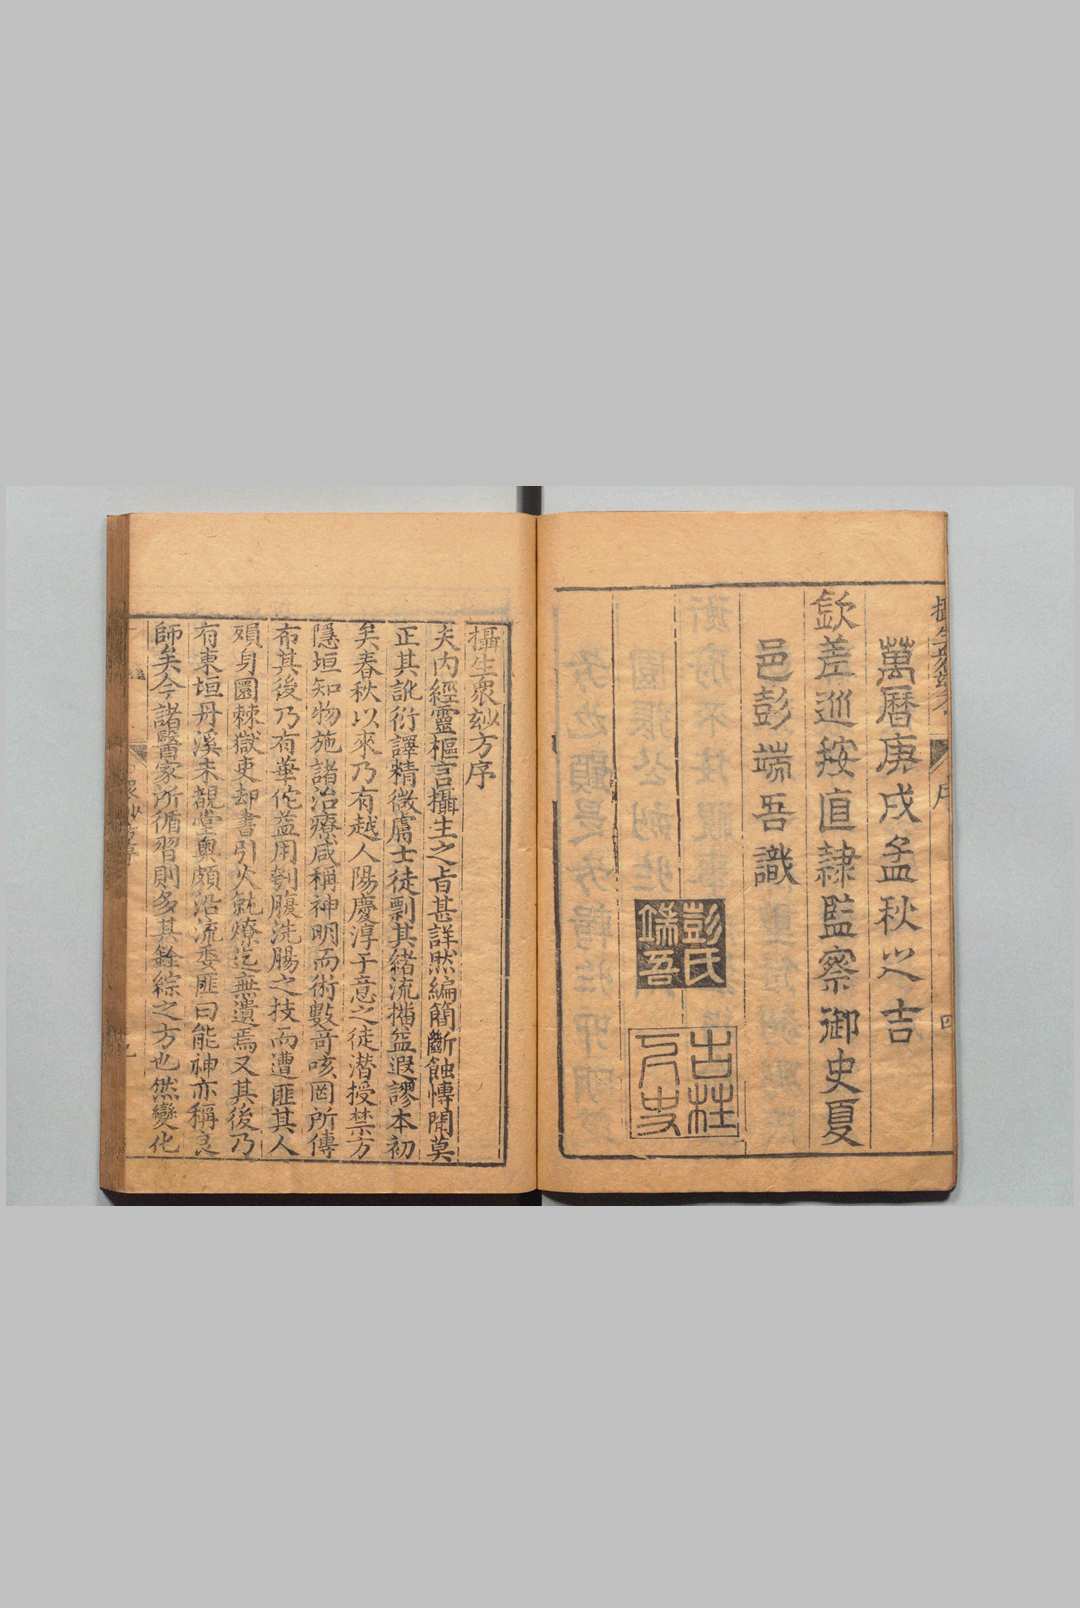 萬曆庚戌孟秋之吉
欽差巡按直隸監察御史夏
邑彭端吾識
彭氏
端吾
古柱
下史
攝生衆妙方序
夫内經靈樞言攝生之旨甚詳然編簡斷蝕慱閑莫
正其訛衍譯精微膚士徒剽其緒流搐盆遐謬本初
矣春秋以來乃有越人陽慶淳于意之徒潜授禁方
隱垣知物施諸治療咸稱神明而術數竒咳罔所傳
布其後乃有華佗益用刳腹洗腸之技而遭匪其人
殞身圜棘獄吏却書引火就燎迄無遺焉又其後乃
有東垣丹溪未覩堂奥頗沿流委匪曰能神亦稱良
師矣今諸醫家所循習則多其餘綜之方也然變化